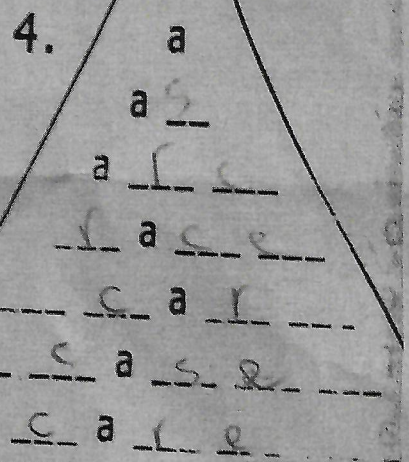 4. a
a s
a r c
r a c e
c a r
c a s e
c a r e